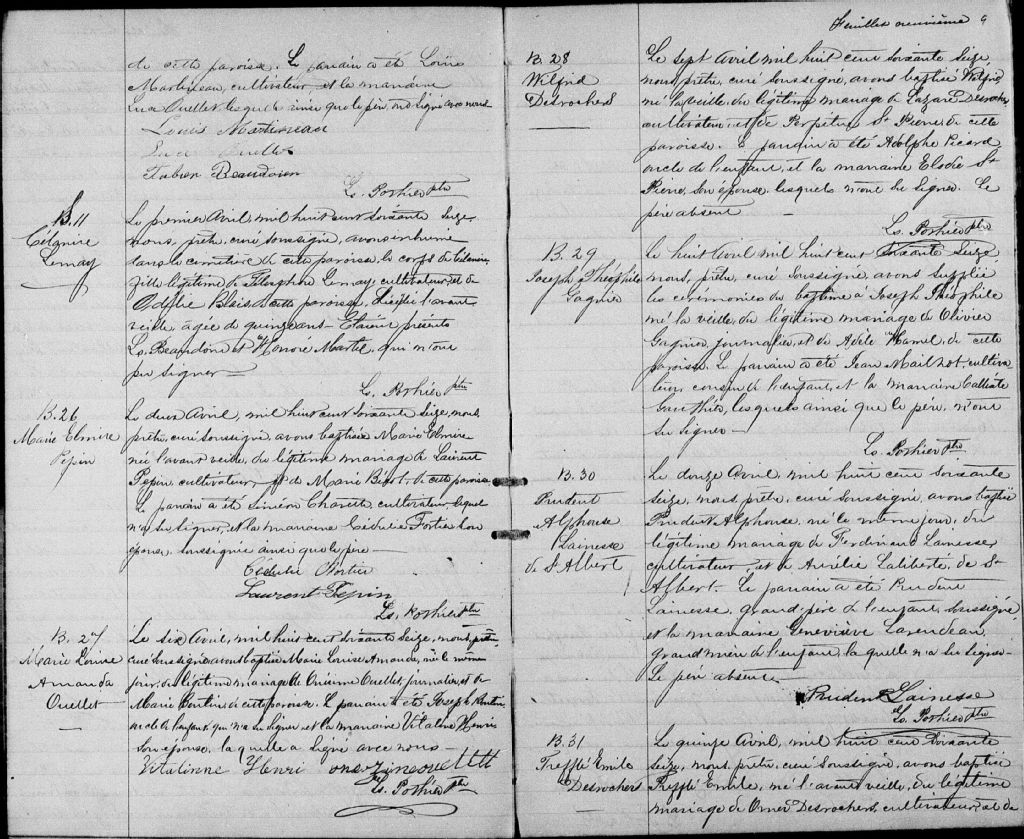 de cette paroisse. Le parrain a été Louis
Martineau, cultivateur, et la marraine
Luce Ouellet, lesquels ainsi que le père, ont signé avec nous
Louis Martineau
Luce Ouellet
Fabien Beaudoin
Ls. Pothier ptre
B. 11
Célanire
Lemay
Le premier Avril, mil huit cent soixante Seize
nous, prêtre, curé soussigné, avons inhumé
dans le cimetière de cette paroisse, le corps de Célanire
fille légitime de Théophile Lemay, cultivateur, et de
Odylie Blais de cette paroisse, décédée l'avant
veille, agée de quinze ans. Etaient présents
Ls. Beaudoin et Honoré Martel, qui n'ont
pu signer
Ls. Pothier ptre
B. 26
Marie Elmire
Pepin
Le deux Avril, mil huit cent soixante Seize, nous,
prêtre, curé soussigné, avons baptisé Marie Elmire
née l'avant veille, du légitime mariage de Laurent
Pepin, cultivateur, et de Marie de cette paroisse.
Le parrain a été Siméon Charette, cultivateur, lequel
n'a su signer, et la marraine Cédulie Fortier son
épouse, soussignée ainsi que le père
Cédulie Fortier
Laurent Pepin
Ls. Pothier ptre
B. 27
Marie Louise
Amanda
Ouellet
Le six Avril, mil huit cent soixante Seize, nous, prêtre
curé soussigné, avons baptisé Marie Louise Amanda, née le même
jour, du légitime mariage de Onésime Ouellet, journalier, et de
Marie de cette paroisse. Le parrain a été Joseph
oncle de l'enfant, qui n'a su signer et la marraine Vitaline Henri
son épouse, laquelle a signé avec nous
Vitalinne Henri onezime ouellett
Ls. Pothier ptre
Feuillet neuvième 9
B. 28
Wilfrid
Desrochers
Le sept Avril mil huit cent soixante Seize,
nous, prêtre, curé soussigné, avons baptisé Wilfrid,
né la veille, du légitime mariage de Lazare Desrochers
cultivateur, et de Perpétue St Pierre de cette
paroisse. Le parrain a été Adolphe Picard
oncle de l'enfant, et la marraine Elodie St
Pierre, son épouse, lesquels n'ont su signer. Le
père absent
Ls. Pothier ptre
B. 29
Joseph Théophile
Gagnier
Le huit Avril mil huit cent soixante Seize
nous, prêtre, curé soussigné, avons suppléé
les cérémonies du baptême à Joseph Théophile
né la veille, du légitime mariage de Olivier
Gagnier, journalier, et de Adèle Hamel, de cette
paroisse. Le parrain a été Jean Mailhot, cultiva
teur, cousin de l'enfant, et la marraine
Gauthier, lesquels ainsi que le père, n'ont
su signer
Ls. Pothier ptre
B. 30
Prudent
Alphonse
Lainesse
de St Albert
Le douze Avril, mil huit cent soixante
Seize, nous, prêtre, curé soussigné, avons baptisé
Prudent Alphonse, né le même jour, du
légitime mariage de Ferdinand Lainesse,
cultivateur, et de Aurélie Laliberté, de St
Albert. Le parrain a été Prudent
Lainesse, grand père de l'enfant, soussigné,
et la marraine Geneviève Larendeau,
grand'mère de l'enfant, laquelle n'a su signer.
Le père absent
Prudent Lainesse
Ls. Pothier ptre
B. 31
Trefflé Emile
Desrochers
Le quinze Avril, mil huit cent soixante
Seize, nous, prêtre, curé soussigné, avons baptisé
Trefflé Emile, né l'avant veille, du légitime
mariage de Omer Desrochers, cultivateur, et de